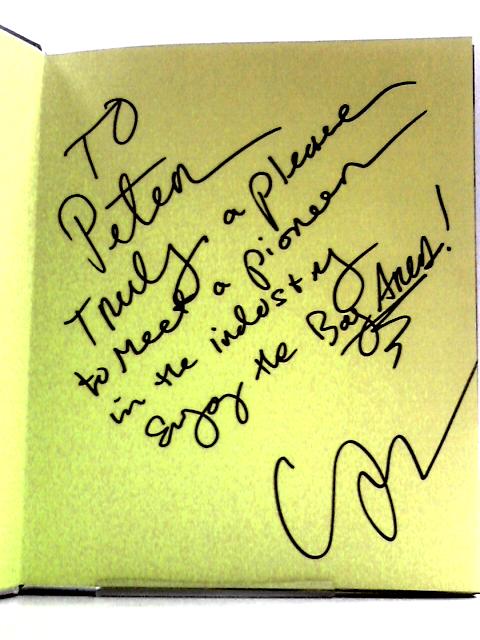 TO
Peter
Truly a please
to meet a pioneer
in the industry
Enjoy the Bay Area!